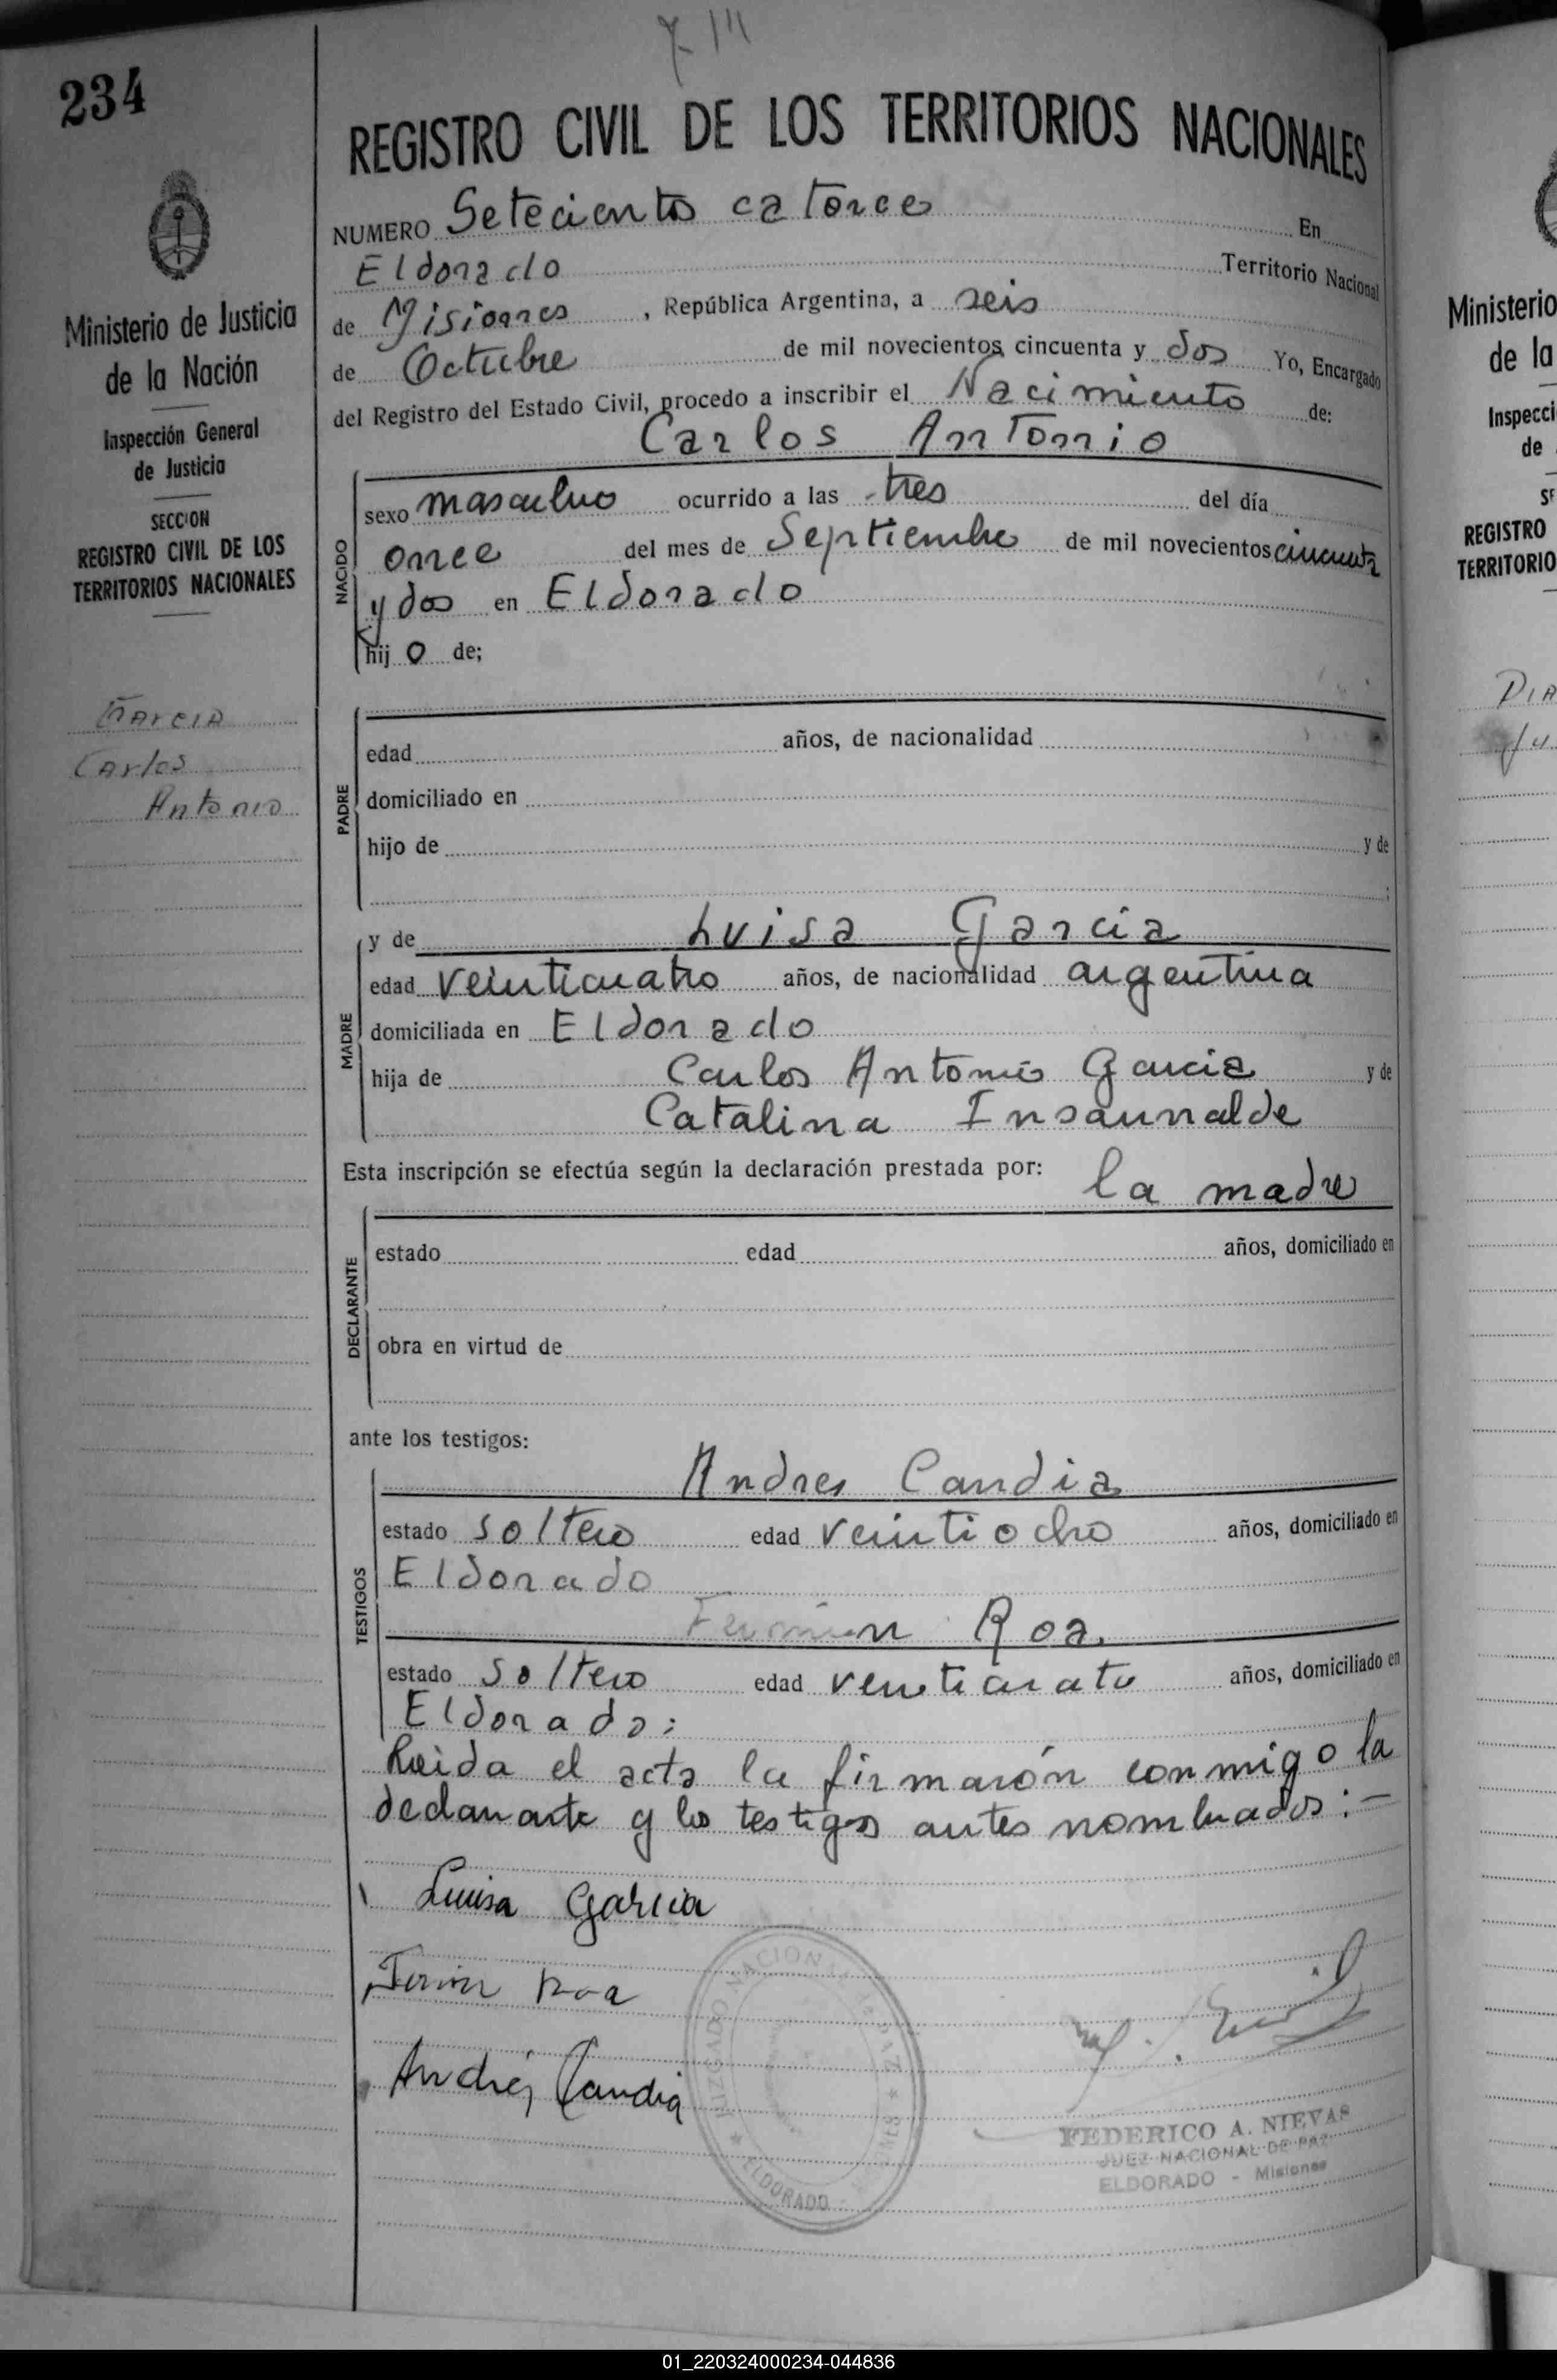 7 111
234
REGISTRO CIVIL DE LOS TERRITORIOS NACIONALES
NUMERO Setecientos catorce En
Eldorado Territorio Nacional
de Misiones , República Argentina, a seis
de Octubre de mil novecientos cincuenta y dos Yo, Encargado
del Registro del Estado Civil, procedo a inscribir el Nacimiento de:
Carlos Antonio
Ministerio de Justicia
de la Nación
Inspección General
de Justicia
SECCION
REGISTRO CIVIL DE LOS
TERRITORIOS NACIONALES
Garcia
Carlos
Antonio
NACIDO
sexo masculino ocurrido a las tres del día
once del mes de Septiembre de mil novecientos cincuenta
y dos en Eldorado
hij o de;
PADRE
edad años, de nacionalidad
domiciliado en
hijo de y de
;
MADRE
y de Luisa Garcia
edad veinticuatro años, de nacionalidad argentina
domiciliada en Eldorado
hija de Carlos Antonio Garcia y de
Catalina Insaurralde
Esta inscripción se efectúa según la declaración prestada por:
la madre
DECLARANTE
estado edad años, domiciliado en
obra en virtud de
ante los testigos:
TESTIGOS
Andres Candia
estado soltero edad veintiocho años, domiciliado en
Eldorado
Fermin Roa.
estado soltero edad veinticuatro años, domiciliado en
Eldorado:
Leida el acta la firmarón conmigo la
declarante y los testigos antes nombrados:-
Luisa Garcia
Roa
Andrés Candia
JUZGADO NACIONAL DE PAZ
★ ELDORADO - MISIONES ★
FEDERICO A. NIEVAS
JUEZ NACIONAL DE PAZ
ELDORADO - Misiones
Ministerio
de la
Inspecci
de
REGISTRO
TERRITORIO
01_220324000234-044836